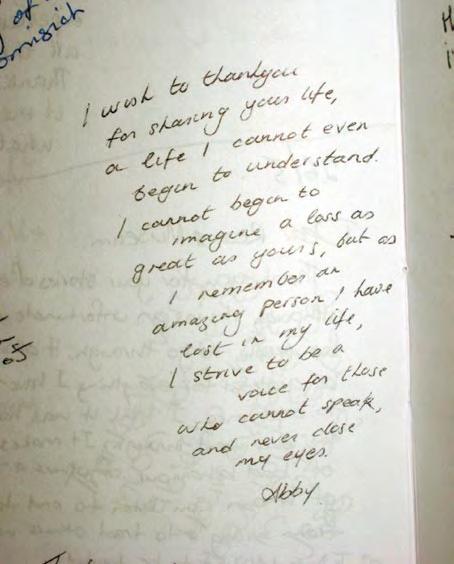 y of
omisich
I wish to thankyou
for sharing your life,
a life I cannot even
begin to understand.
I cannot begin to
imagine a loss as
great as yours, but as
I remember an
amazing person I have
lost in my life,
I strive to be a
voice for those
who cannot speak,
and never close
my eyes.
Abby.
05